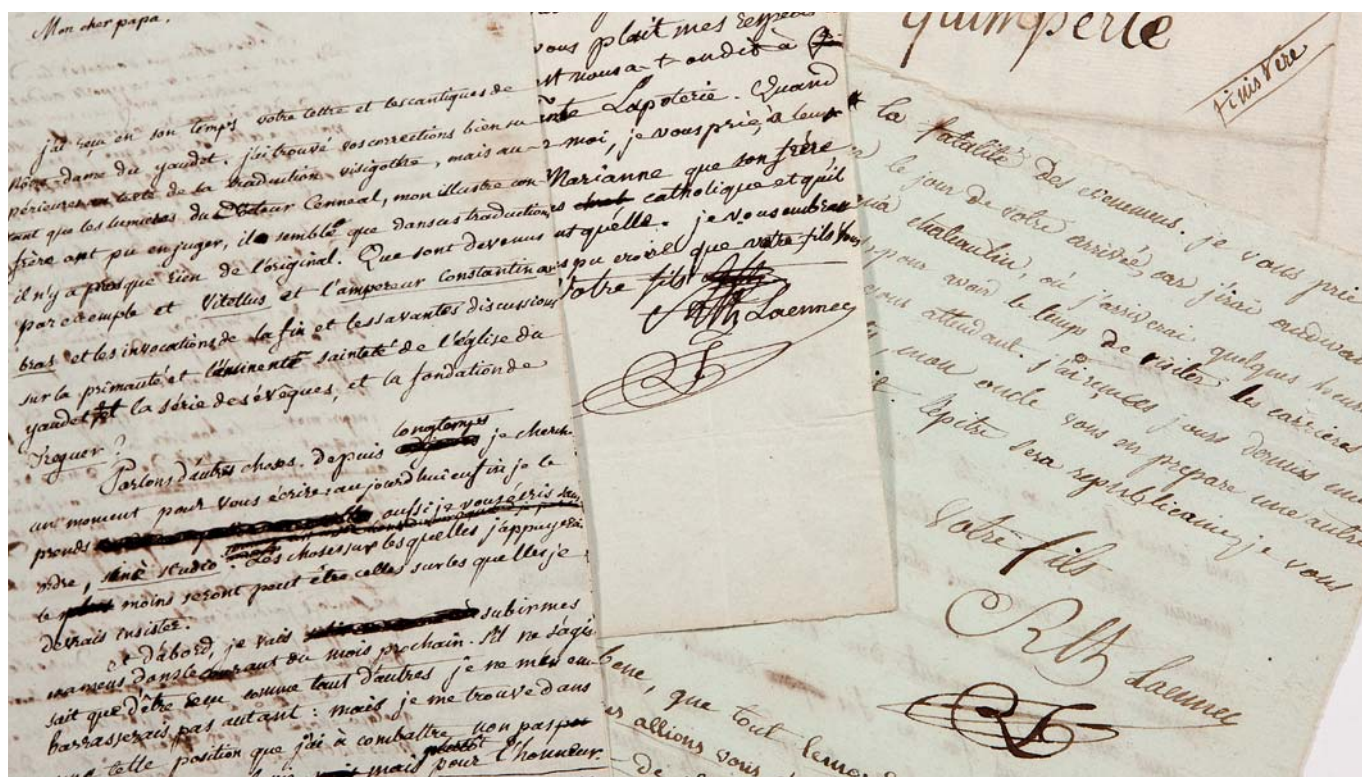 Mon cher papa.
j'ai reçu en son temps votre lettre et les cantiques de
Notre-dame du yaudet. j'ai trouvé vos corrections bien su
périeures au texte de la traduction visigothe, mais au-
tant que les lumieres du Docteur Cenneal, mon illustre con
frère ont pu en juger, il semble que dans sa traduction
il n'y a presque rien de l'original. Que sont devenus
par exemple et Vitellus et l'ampereur constantin
bras et les invocations de la fin et les savantes discussions
sur la primauté et l'éminente sainteté de l'église du
yaudet et la série des évêques, et la fondation de
Treguer?
Parlons d'autres choses. Depuis longtemps je cherch
un moment pour vous écrire, aujourd'hui enfin je le
prends aussi je vous écris sans
ordre, sine studio. Les choses sur lesquelles j'appuyerai
le moins seront peut être celles sur les quelles je
devrais insister.
et d'abord, je vais subir mes
examens dans le courant du mois prochain. s'il ne s'agis
sait que d'être reçu comme tant d'autres je ne m'en em
barrasserais pas autant: mais je me trouve dans
une telle position que j'ai à combattre non pas
mais pour l'honneur.
vous plait mes respects
nous a-t-on dit à
Lapoterie. Quand
moi, je vous prie, à leur
Marianne que son frère
catholique et qu'il
qu'elle. je vous embras
pu croire que votre fils
Votre fils
RTh Laennec
quimperlé
finistere
la fatalité des évenemens. je vous prie
le jour de votre arrivée, car j'irai audevan
chataulin, où j'arriverai quelques heures
pour avoir le temps de visiter les carrières
vous attendant. j'ai reçu ces jours derniers une
mon oncle vous en prepare une autre
l'epitre sera republicaine, je vous
Votre fils
RTh Laennec
bene, que tout le mon
allions vous